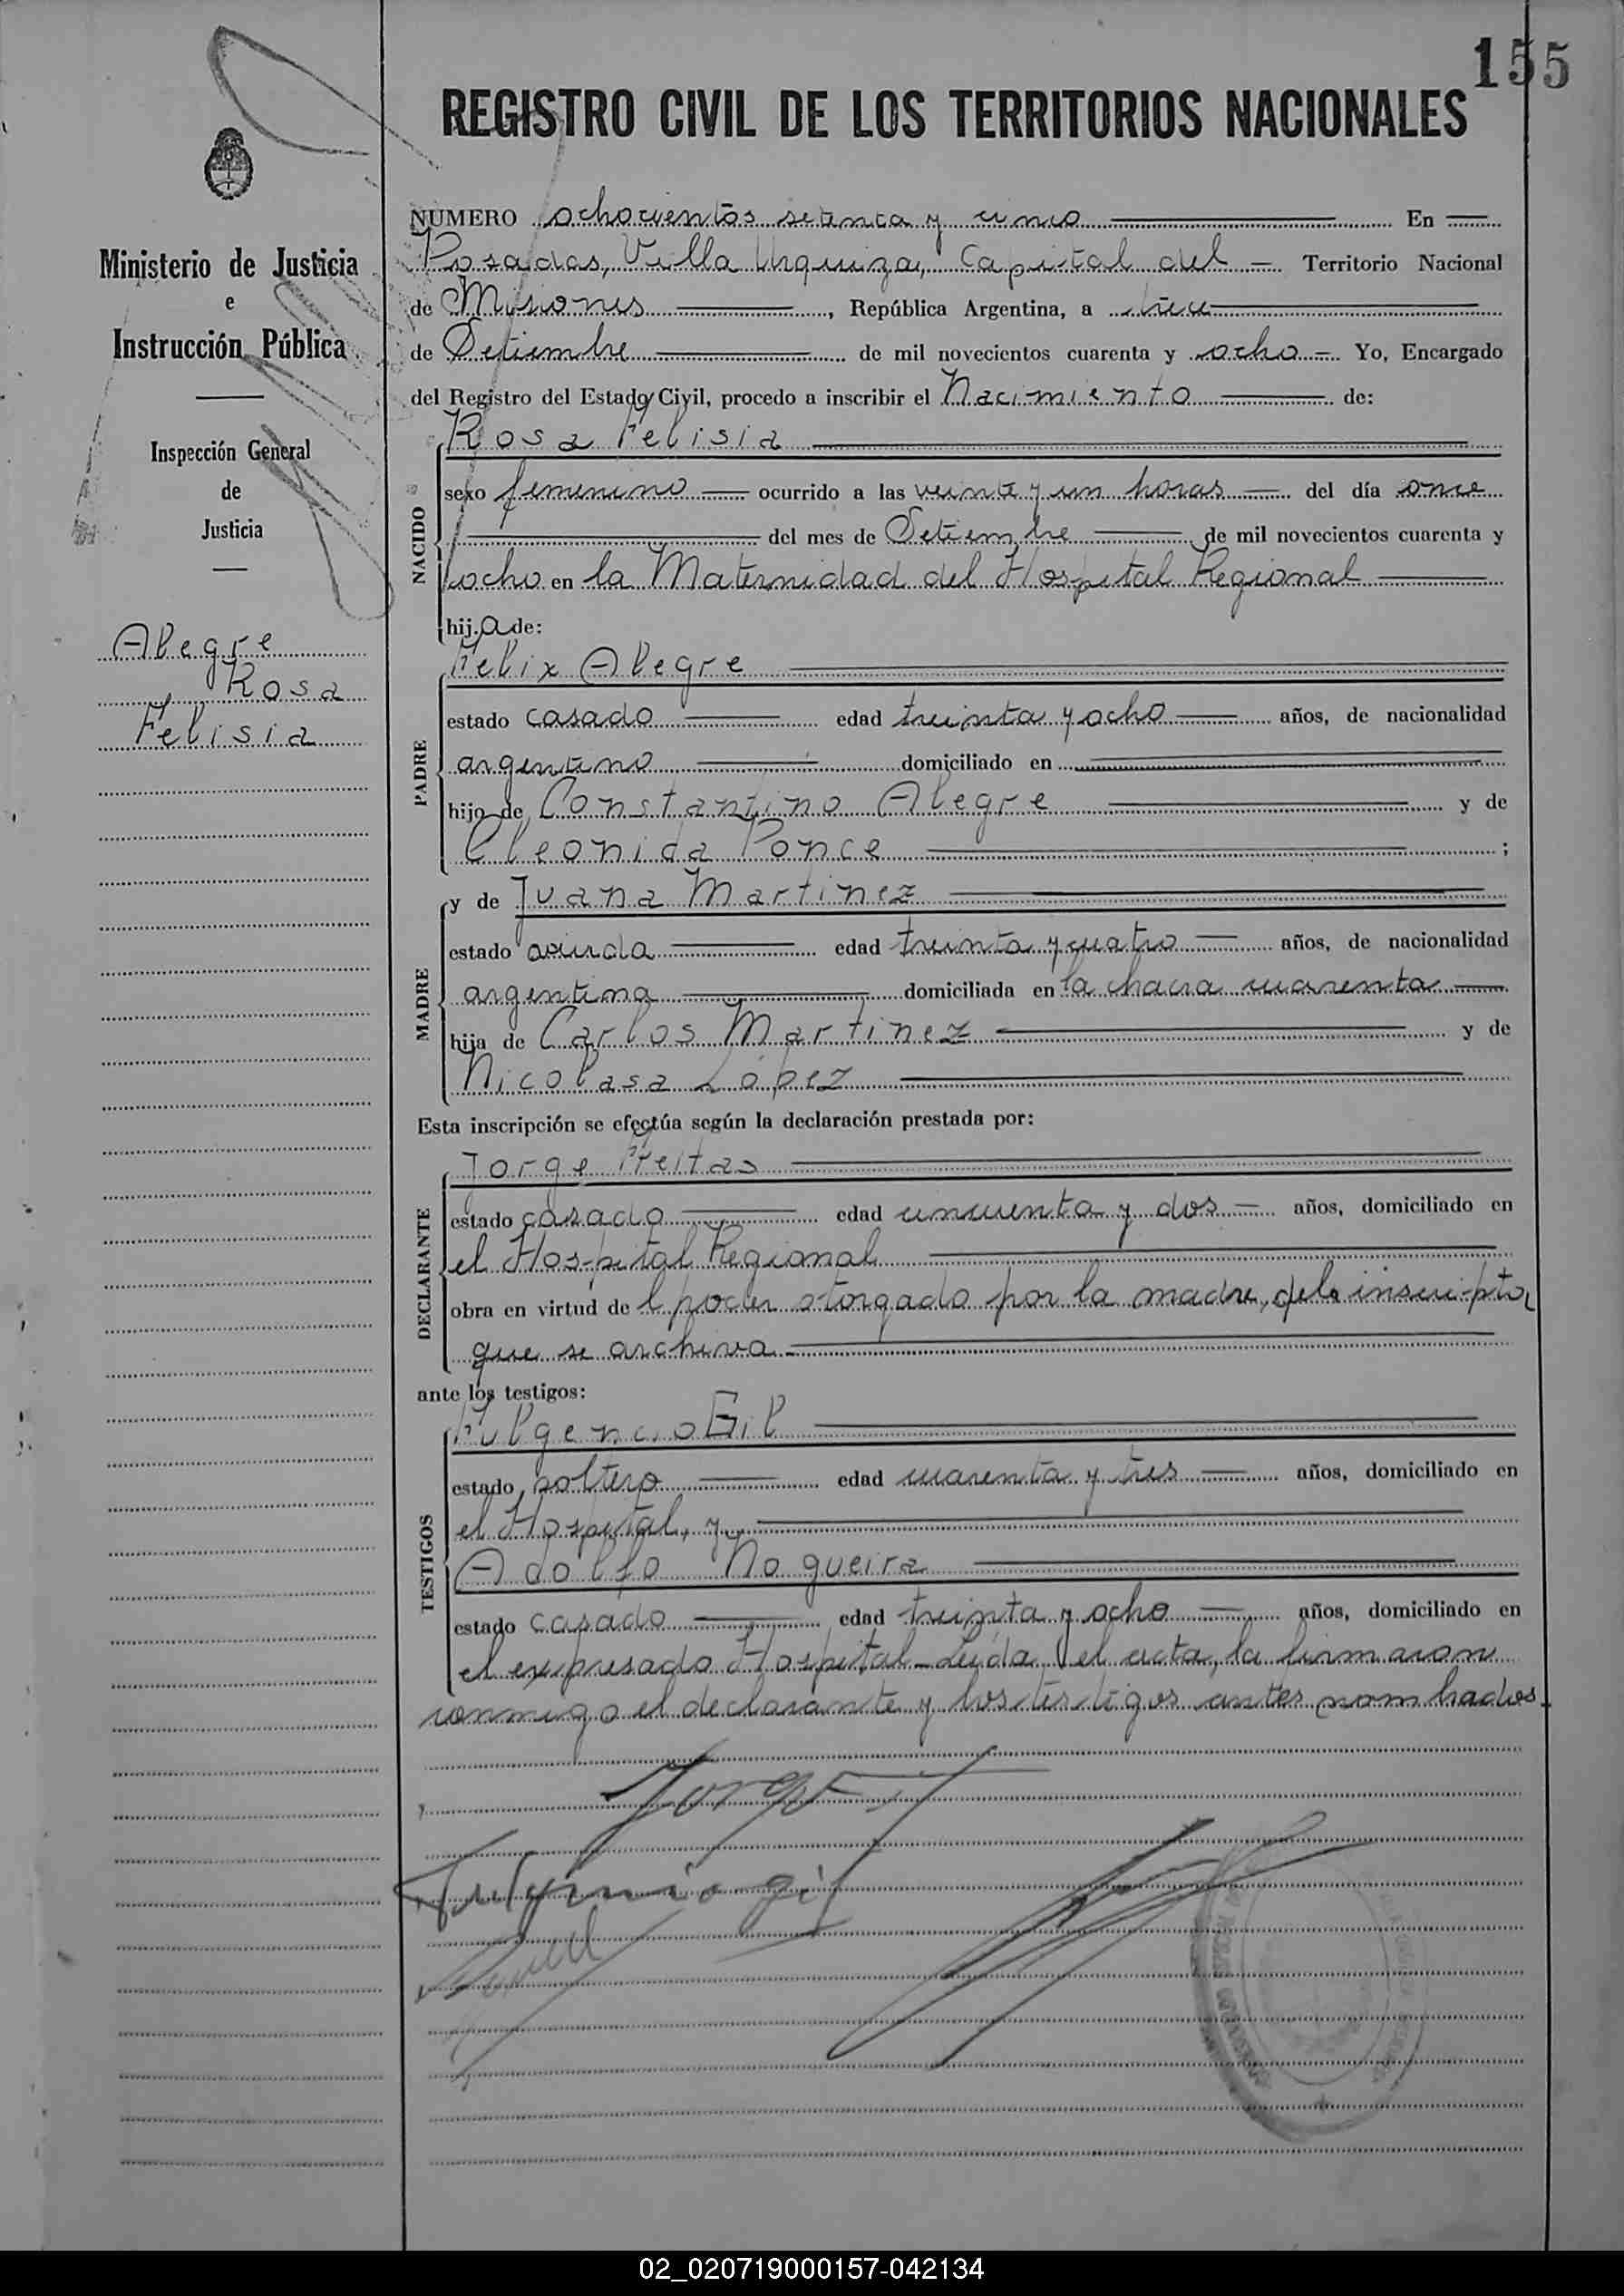 155
REGISTRO CIVIL DE LOS TERRITORIOS NACIONALES
Ministerio de Justicia
e
Instrucción Pública
Inspección General
de
Justicia
Alegre
Rosa
Felisia
NUMERO ochocientos setenta y cinco En
Posadas, Villa Urquiza, Capital del Territorio Nacional
de Misiones, República Argentina, a trece
de Setiembre de mil novecientos cuarenta y ocho Yo, Encargado
del Registro del Estado Civil, procedo a inscribir el Nacimiento de:
NACIDO
Rosa Felisia
sexo femenino ocurrido a las veinte y un horas del día once
del mes de Setiembre de mil novecientos cuarenta y
ocho en la Maternidad del Hospital Regional
hija de:
PADRE
Felix Alegre
estado casado edad treinta y ocho años, de nacionalidad
argentino domiciliado en
hijo de Constantino Alegre y de
Cleonida Ponce ;
MADRE
y de Juana Martinez
estado edad treinta y cuatro años, de nacionalidad
argentina domiciliada en la chacra cuarenta
hija de Carlos Martinez y de
Nicolasa López
Esta inscripción se efectúa según la declaración prestada por:
DECLARANTE
Jorge Freitas
estado casado edad cincuenta y dos años, domiciliado en
el Hospital Regional
obra en virtud del poder otorgado por la madre, de la inscripta
que se archiva
ante los testigos:
TESTIGOS
Fulgencio Gil
estado soltero edad cuarenta y tres años, domiciliado en
el Hospital, y
Adolfo Nogueira
estado casado edad treinta y ocho años, domiciliado en
el expresado Hospital - Leída el acta, la firmaron
conmigo el declarante y los testigos antes nombrados.
Fulgencio gil
02_020719000157-042134